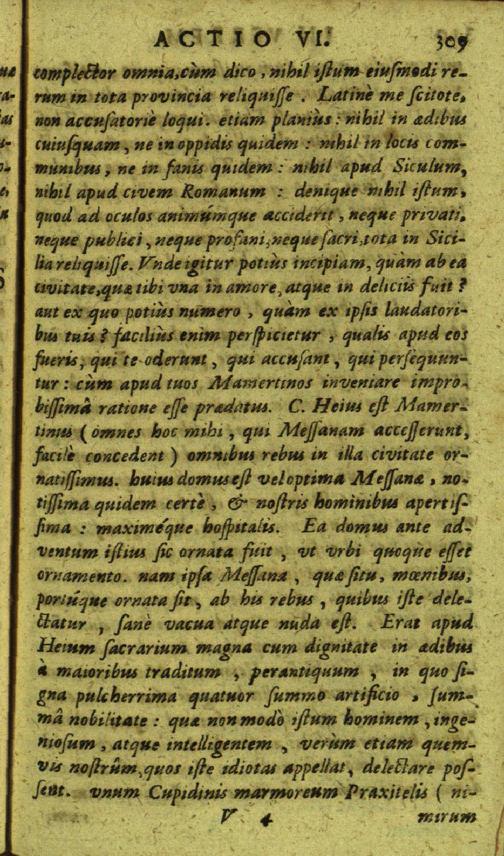 ACTIO VI. 309
complector omnia, cùm dico, nihil iſtum eiuſmodi re-
rum in tota provincia reliquiſſe. Latinè me ſcitote,
non accuſatoriè loqui. etiam planiùs: nihil in ædibus
cuiuſquam, ne in oppidis quidem: nihil in locis com-
munibus, ne in fanis quidem: nihil apud Siculum,
nihil apud civem Romanum: denique nihil iſtum,
quod ad oculos animúmque acciderit, neque privati,
neque publici, neque profani, neque ſacri, tota in Sici-
lia reliquiſſe. Vnde igitur potiùs incipiam, quàm ab ea
civitate, quæ tibi vna in amore, atque in deliciis fuit?
aut ex quo potiùs numero, quàm ex ipſis laudatori-
bus tuis? faciliùs enim perſpicietur, qualis apud eos
fueris, qui te oderunt, qui accuſant, qui perſequun-
tur: cùm apud tuos Mamertinos inveniare impro-
biſſimâ ratione eſſe prædatus. C. Heius eſt Mamer-
tinus (omnes hoc mihi, qui Meſſanam acceſſerunt,
facilè concedent) omnibus rebus in illa civitate or-
natiſſimus. huius domus eſt vel optima Meſſanæ, no-
tiſſima quidem certè, & noſtris hominibus apertiſ-
ſima: maximéque hoſpitalis. Ea domus ante ad-
ventum iſtius ſic ornata fuit, vt vrbi quoque eſſet
ornamento. nam ipſa Meſſana, quæ ſitu, mœnibus,
portúque ornata ſit, ab his rebus, quibus iſte dele-
ctatur, ſanè vacua atque nuda eſt. Erat apud
Heium ſacrarium magna cum dignitate in ædibus
à maioribus traditum, perantiquum, in quo ſi-
gna pulcherrima quatuor ſummo artificio, ſum-
mâ nobilitate: quæ non modò iſtum hominem, inge-
nioſum, atque intelligentem, verùm etiam quem-
vis noſtrûm, quos iſte idiotas appellat, delectare poſ-
ſent. vnum Cupidinis marmoreum Praxitelis (ni-
V 4 mirum